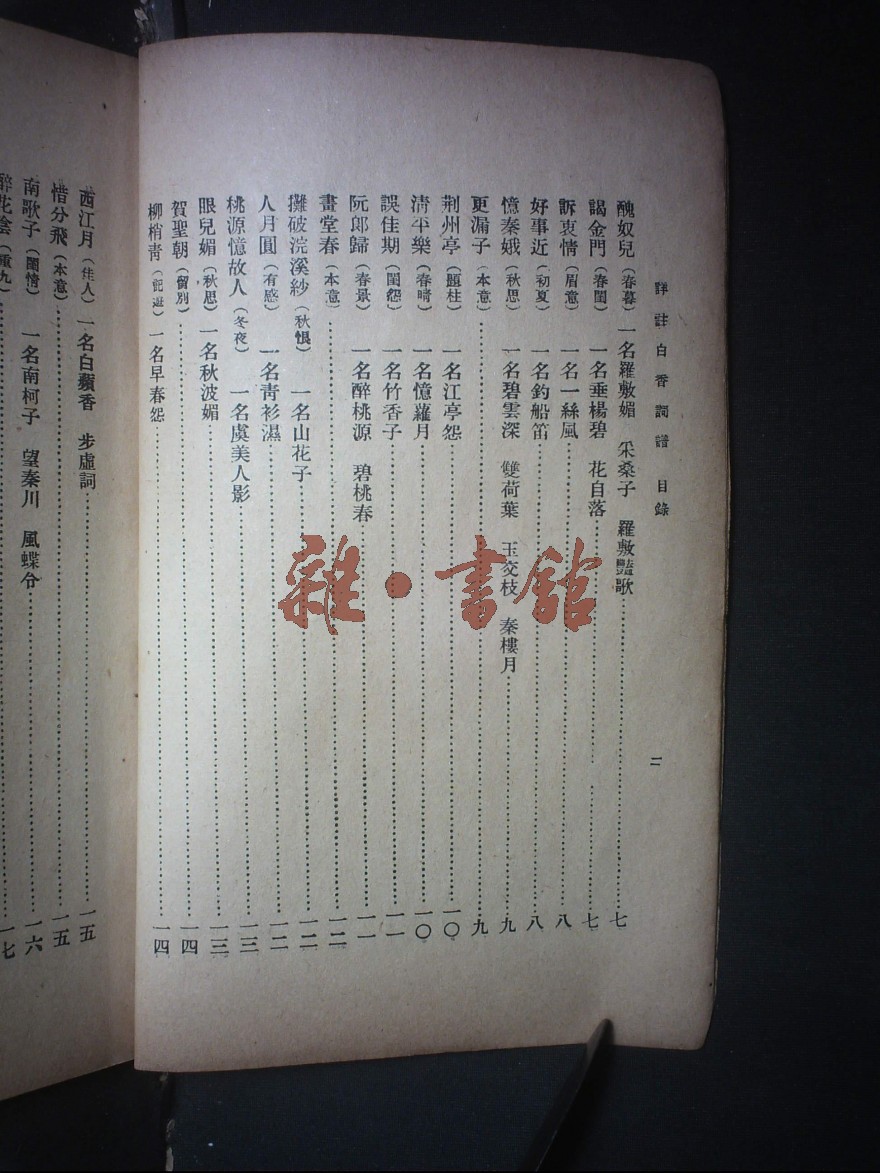 詳註白香詞譜 目錄
二
醜奴兒(春暮) 一名羅敷媚 采桑子 羅敷豔歌……七
謁金門(春閨) 一名垂楊碧 花自落……七
訴衷情(眉意) 一名一絲風……八
好事近(初夏) 一名釣船笛……八
憶秦娥(秋思) 一名碧雲深 雙荷葉 玉交枝 秦樓月……九
更漏子(本意)……九
荆州亭(題柱) 一名江亭怨……一〇
淸平樂(春晴) 一名憶蘿月……一〇
誤佳期(閨怨) 一名竹香子……一一
阮郞歸(春景) 一名醉桃源 碧桃春……一一
畫堂春(本意)……一二
攤破浣溪紗(秋恨) 一名山花子……一二
人月圓(有感) 一名靑衫濕……一二
桃源憶故人(冬夜) 一名虞美人影……一三
眼兒媚(秋思) 一名秋波媚……一三
賀聖朝(留別)……一四
柳梢靑(記遊) 一名早春怨……一四
西江月(佳人) 一名白蘋香 步虛詞……一五
惜分飛(本意)……一五
南歌子(閨情) 一名南柯子 望秦川 風蝶令……一六
醉花陰(重九)……一七
雜·書館